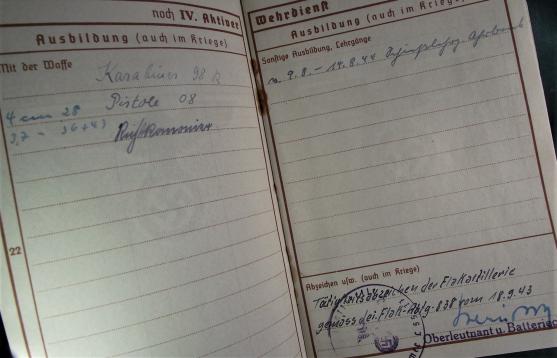 noch IV. Aktiver
Ausbildung (auch im Kriege)
Mit der Waffe
Karabiner 98 k
4 cm 28 Pistole 08
3,7 - 36+43
22
Wehrdienst
Ausbildung (auch im Kriege)
Sonstige Ausbildung, Lehrgänge
9.8. - 14.8.44
Abzeichen usw. (auch im Kriege)
Tätigkeitsabzeichen der Flakartillerie
gemäss bei. Flak-Abtg. 838 vom 18.9.43
Oberleutnant u. Batterie